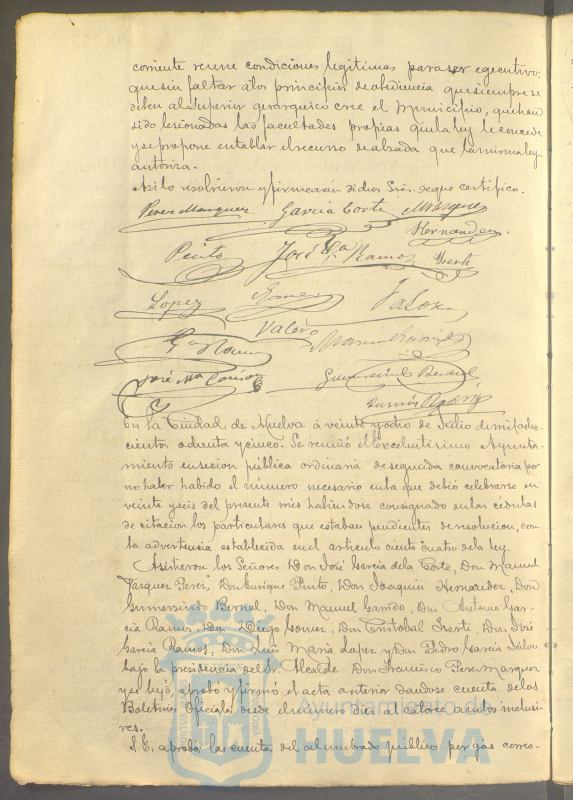 corriente reune condiciones legitimas para ser egecutivo:
que sin faltar á los principios de obediencia que siempre se
deben al Superior gerarquico cree el Municipio, que han
sido lesionadas las facultades propias que la ley le concede
y se propone entablar el recurso de alzada que la misma ley
autoriza.
Asi lo resolvieron y firmaran dichos Sres. de que certifico.
Perez Marquez García Corte Marquez
Hernandez.
Pinto José Ga Ramos Yserti
Lopez Gomez
Valero
José Ma
Gumersindo Bernal
En la Ciudad de Huelva á veinte y ocho de Julio de mil ocho-
cientos ochenta y cinco. Se reunió el Excelentisimo Ayunta-
miento en sesion pública ordinaria de segunda convocatoria por
no haber habido el número necesario en la que debió celebrarse en
veinte y seis del presente mes habiendose consignado en las cédulas
de citacion los particulares que estaban pendientes de resolucion, con
la advertencia establecida en el articulo ciento cuatro de la ley.
Asistieron los Señores Don José Garcia de la Corte, Don Manuel
Vazquez Perez, Don Enrique Pinto, Don Joaquin Hernandez, Don
Gumersindo Bernal, Don Manuel Garrido, Don Antonio Gar-
cia Ramos, Don Diego Gomez, Don Cristobal Yserti, Don José
Garcia Ramos, Don Luis Maria Lopez y Don Pedro Garcia
bajo la presidencia del Sr. Alcalde Don Francisco Perez Marquez
y se leyó, aprobó y firmó el acta anterior dandose cuenta de los
Boletines Oficiales desde el número diez al catorce ambos inclusi-
ves.
S. E. aprobó la cuenta del alumbrado público por gas corres-
Ayuntamiento de
HUELVA